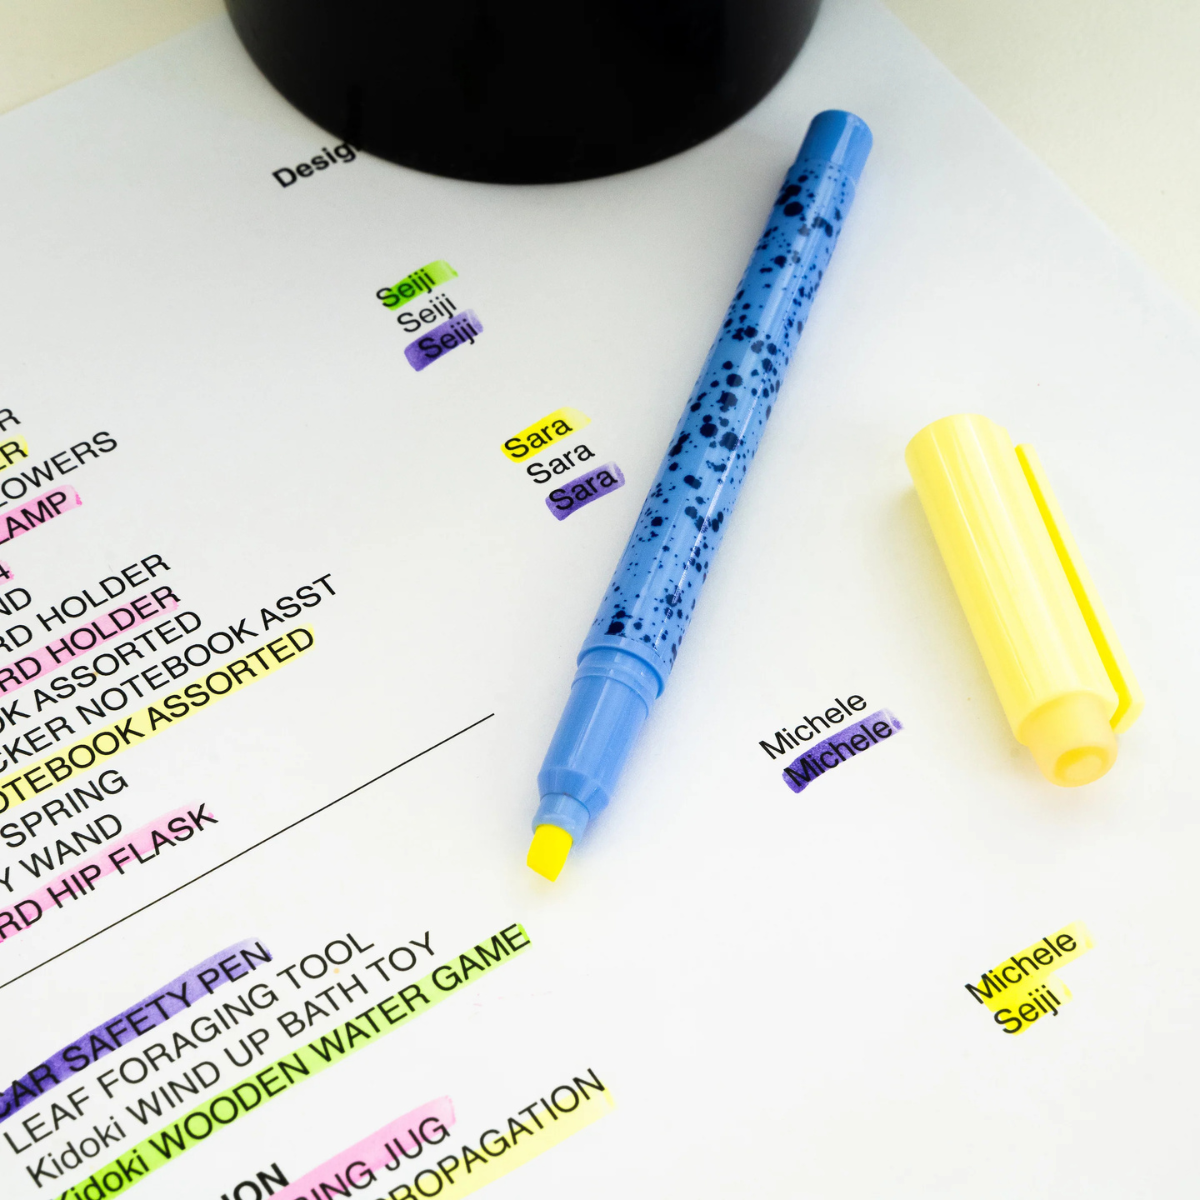 Desig
Seiji
Seiji
Seiji
Sara
Sara
Sara
Michele
Michele
Michele
Seiji
R
ER
LOWERS
LAMP
4
ND
RD HOLDER
RD HOLDER
OK ASSORTED
CKER NOTEBOOK ASST
OTEBOOK ASSORTED
SPRING
Y WAND
RD HIP FLASK
CAR SAFETY PEN
LEAF FORAGING TOOL
Kidoki WIND UP BATH TOY
Kidoki WOODEN WATER GAME
ION
RING JUG
ROPAGATION